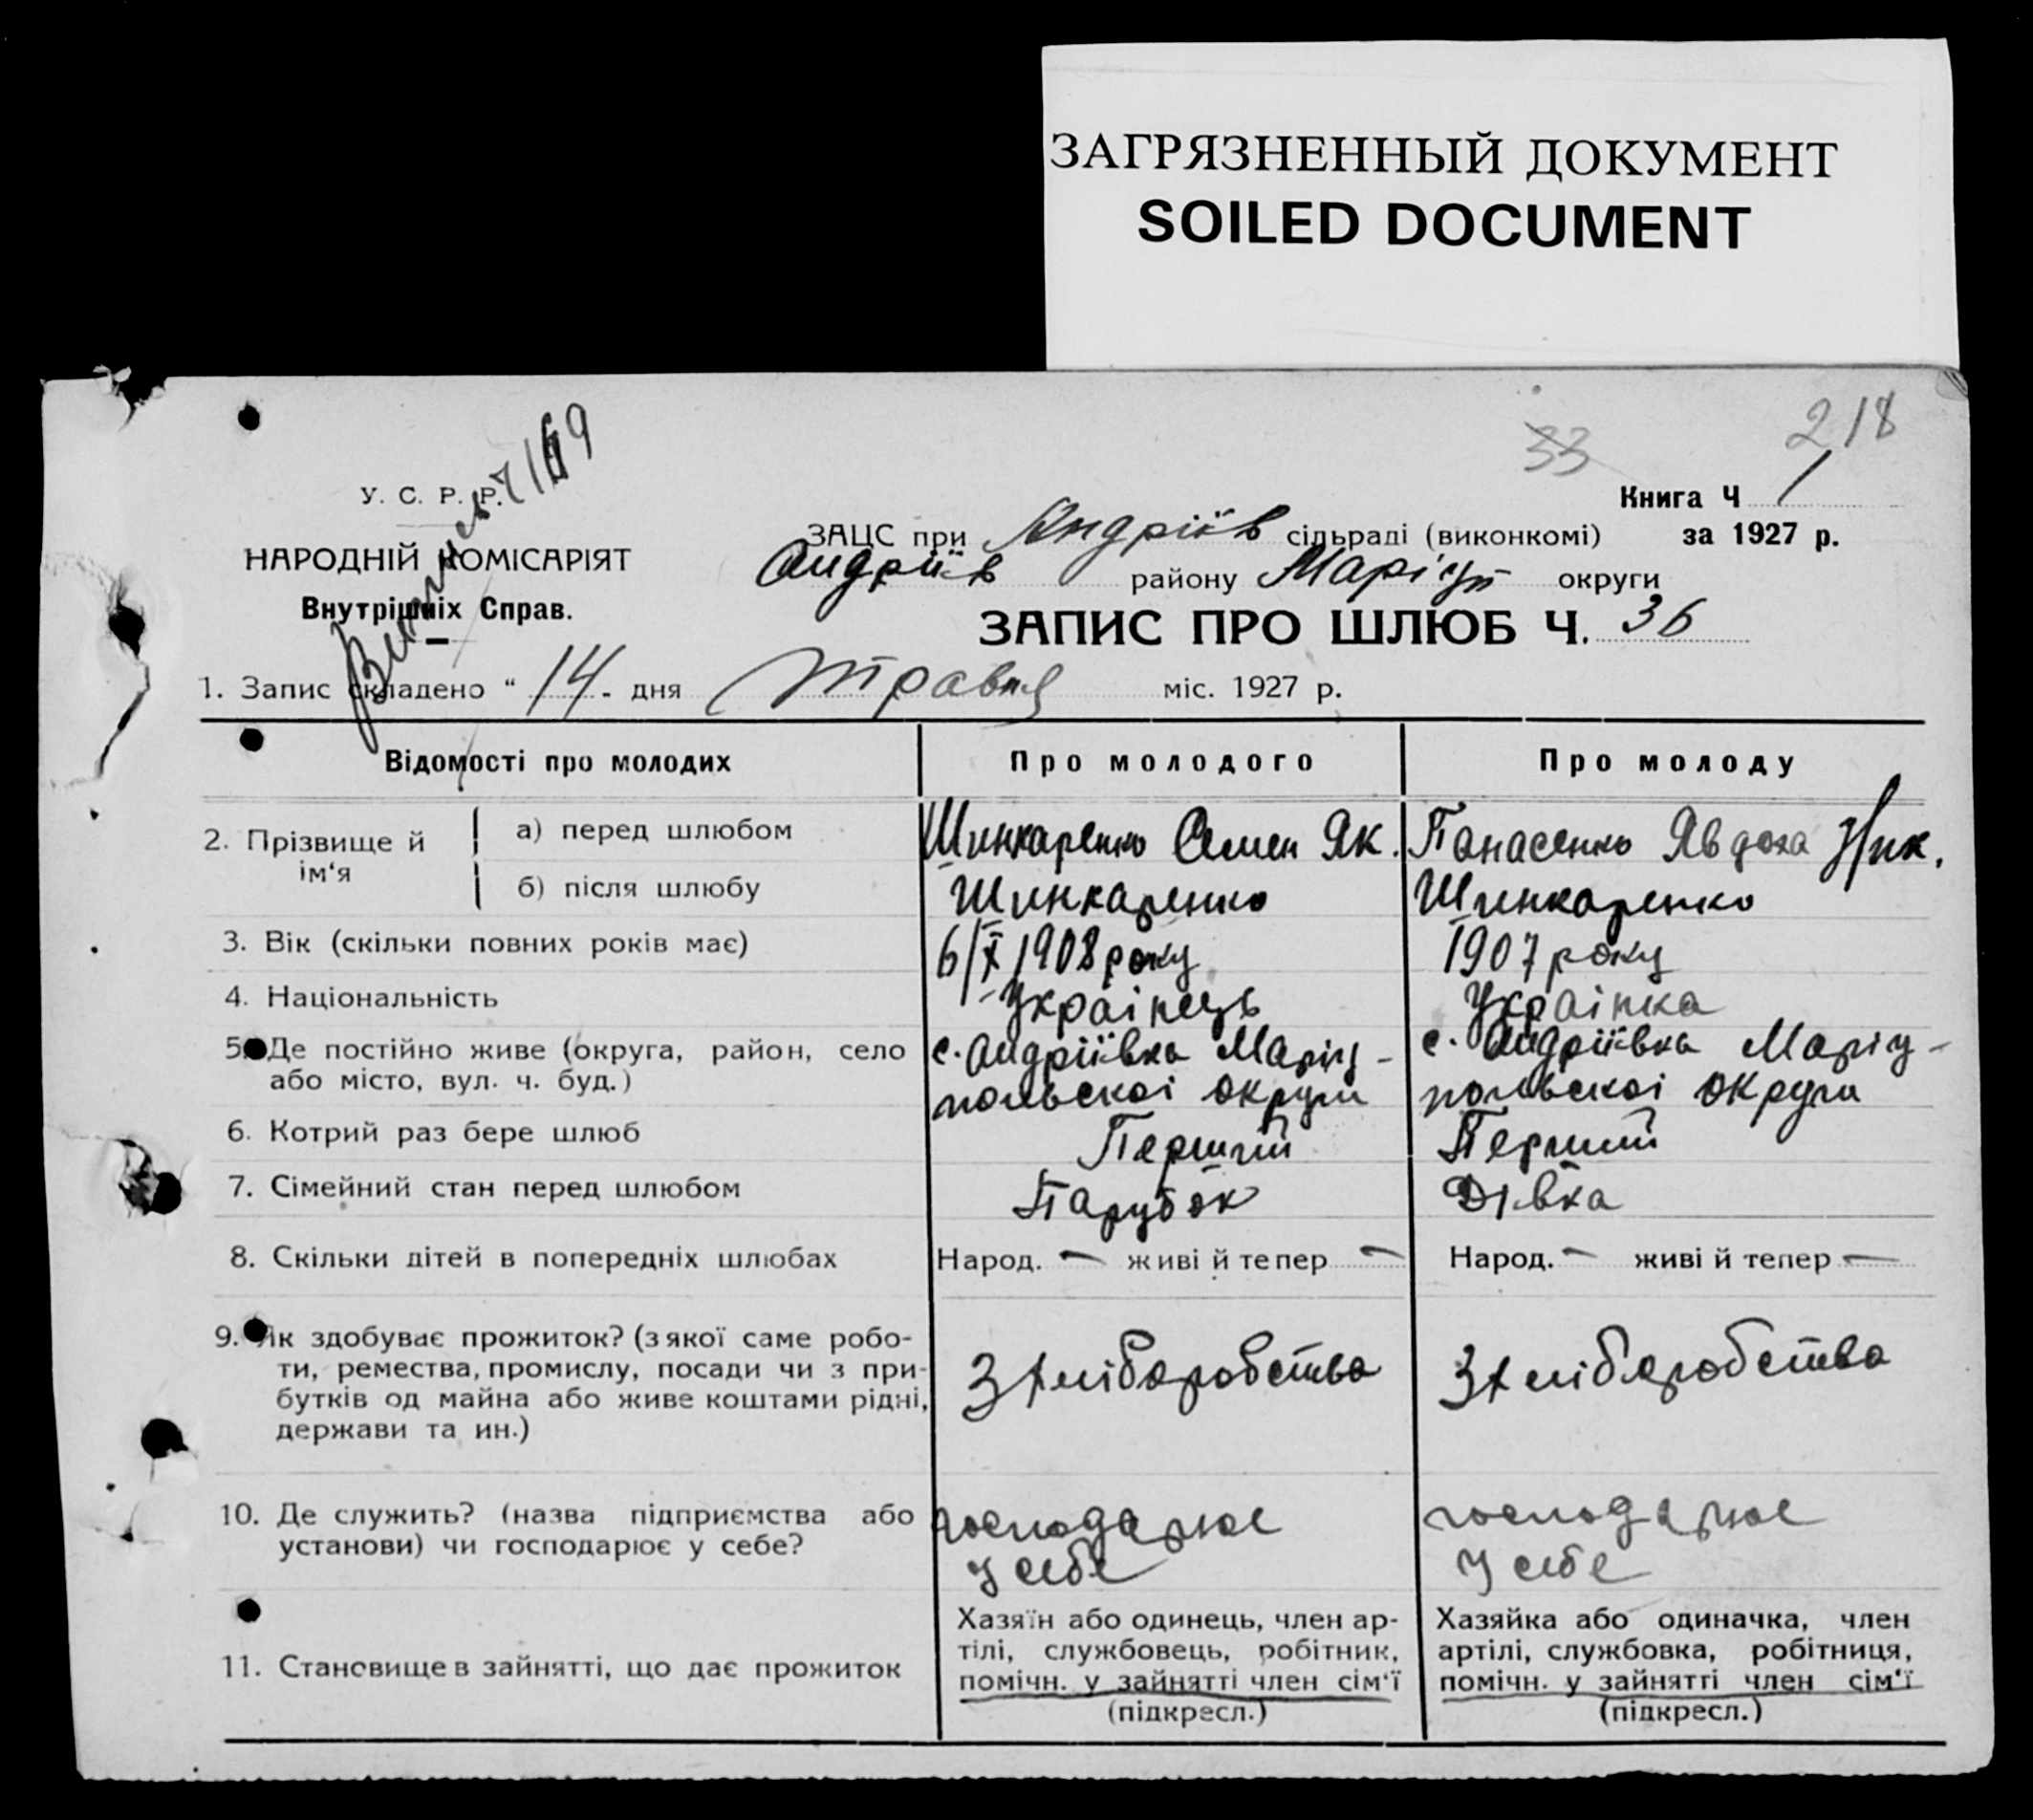 ЗАГРЯЗНЕННЫЙ ДОКУМЕНТ
SOILED DOCUMENT
218
33
У. С. Р. Р.
Книга Ч 1
ЗАЦС при Андріїв сільраді (виконкомі) за 1927 р.
НАРОДНІЙ КОМІСАРІЯТ
Андріїв району Маріуп округи
Внутрішніх Справ.
ЗАПИС ПРО ШЛЮБ Ч. 36
1. Запис складено “ 14 - дня травня міс. 1927 р.
Відомості про молодих Про молодого Про молоду
2. Прізвище й ім‘я а) перед шлюбом Шинкаренко Семен Як. Панасенко Явдоха Ник.
б) після шлюбу Шинкаренко Шинкаренко
3. Вік (скільки повних років має) 6/X 1908 року 1907 року
4. Національність Українець Українка
5. Де постійно живе (округа, район, село або місто, вул. ч. буд.) с. Андріївка Маріу-
польскоі округи с. Андріївка Маріу-
польскоі округи
6. Котрий раз бере шлюб Перший Перший
7. Сімейний стан перед шлюбом Парубок Дівка
8. Скільки дітей в попередніх шлюбах Народ. — живі й тепер — Народ. — живі й тепер —
9. Як здобуває прожиток? (з якої саме робо-
ти, ремества, промислу, посади чи з при-
бутків од майна або живе коштами рідні,
держави та ин.)
З хліборобства З хліборобства
10. Де служить? (назва підприємства або
установи) чи господарює у себе?
господарює
у себе
господарює
у себе
11. Становище в зайнятті, що дає прожиток
Хазяїн або одинець, член ар-
тілі, службовець, робітник,
помічн. у зайнятті член сім‘ї
(підкресл.)
Хазяйка або одиначка, член
артілі, службовка, робітниця,
помічн. у зайнятті член сім‘ї
(підкресл.)